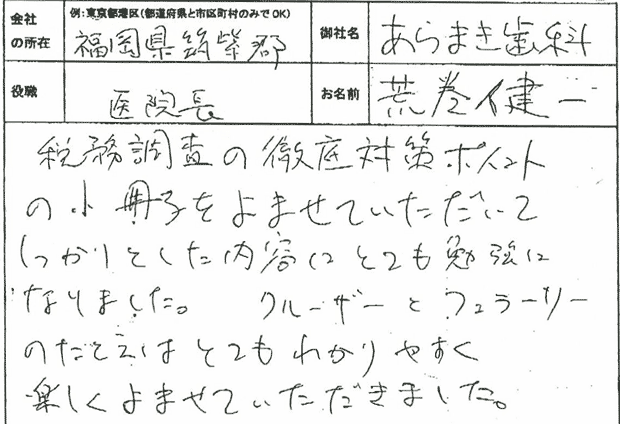 会社の所在 例:東京都港区(都道府県と市区町村のみでOK) 福岡県筑紫郡 御社名 あらまき歯科
役職 医院長 お名前 荒巻健一
税務調査の徹底対策ポイント
の小冊子をよませていただいて
しっかりとした内容にとても勉強に
なりました。 クルーザーとフェラーリー
のたとえはとてもわかりやすく
楽しくよませていただきました。